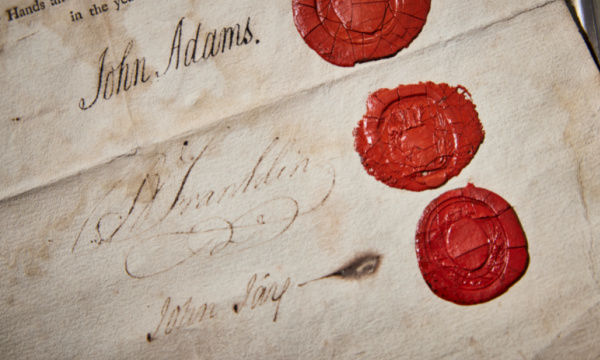 Hands an
in the yea
John Adams.
B Franklin
John Jay